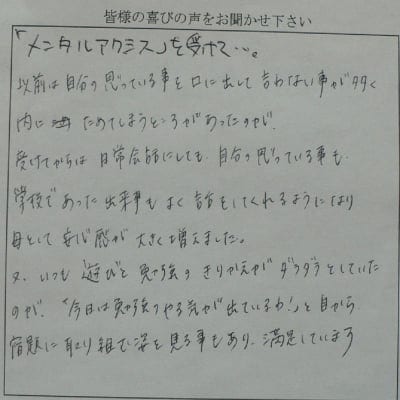 皆様の喜びの声をお聞かせ下さい
「メンタルアクシス」を受けて…。
以前は自分の思っている事を口に出して言わない事が多く
内に ためてしまうところがあったのが、
受けてからは 日常会話にしても、自分の思っている事も、
学校であった出来事もよく話をしてくれるようになり
母として安心感が大きく増えました。
又、いつも遊びと勉強のきりかえがダラダラとしていた
のが、「今日は勉強のやる気が出ているわ！」と自から
宿題に取り組む姿を見る事もあり、満足しています